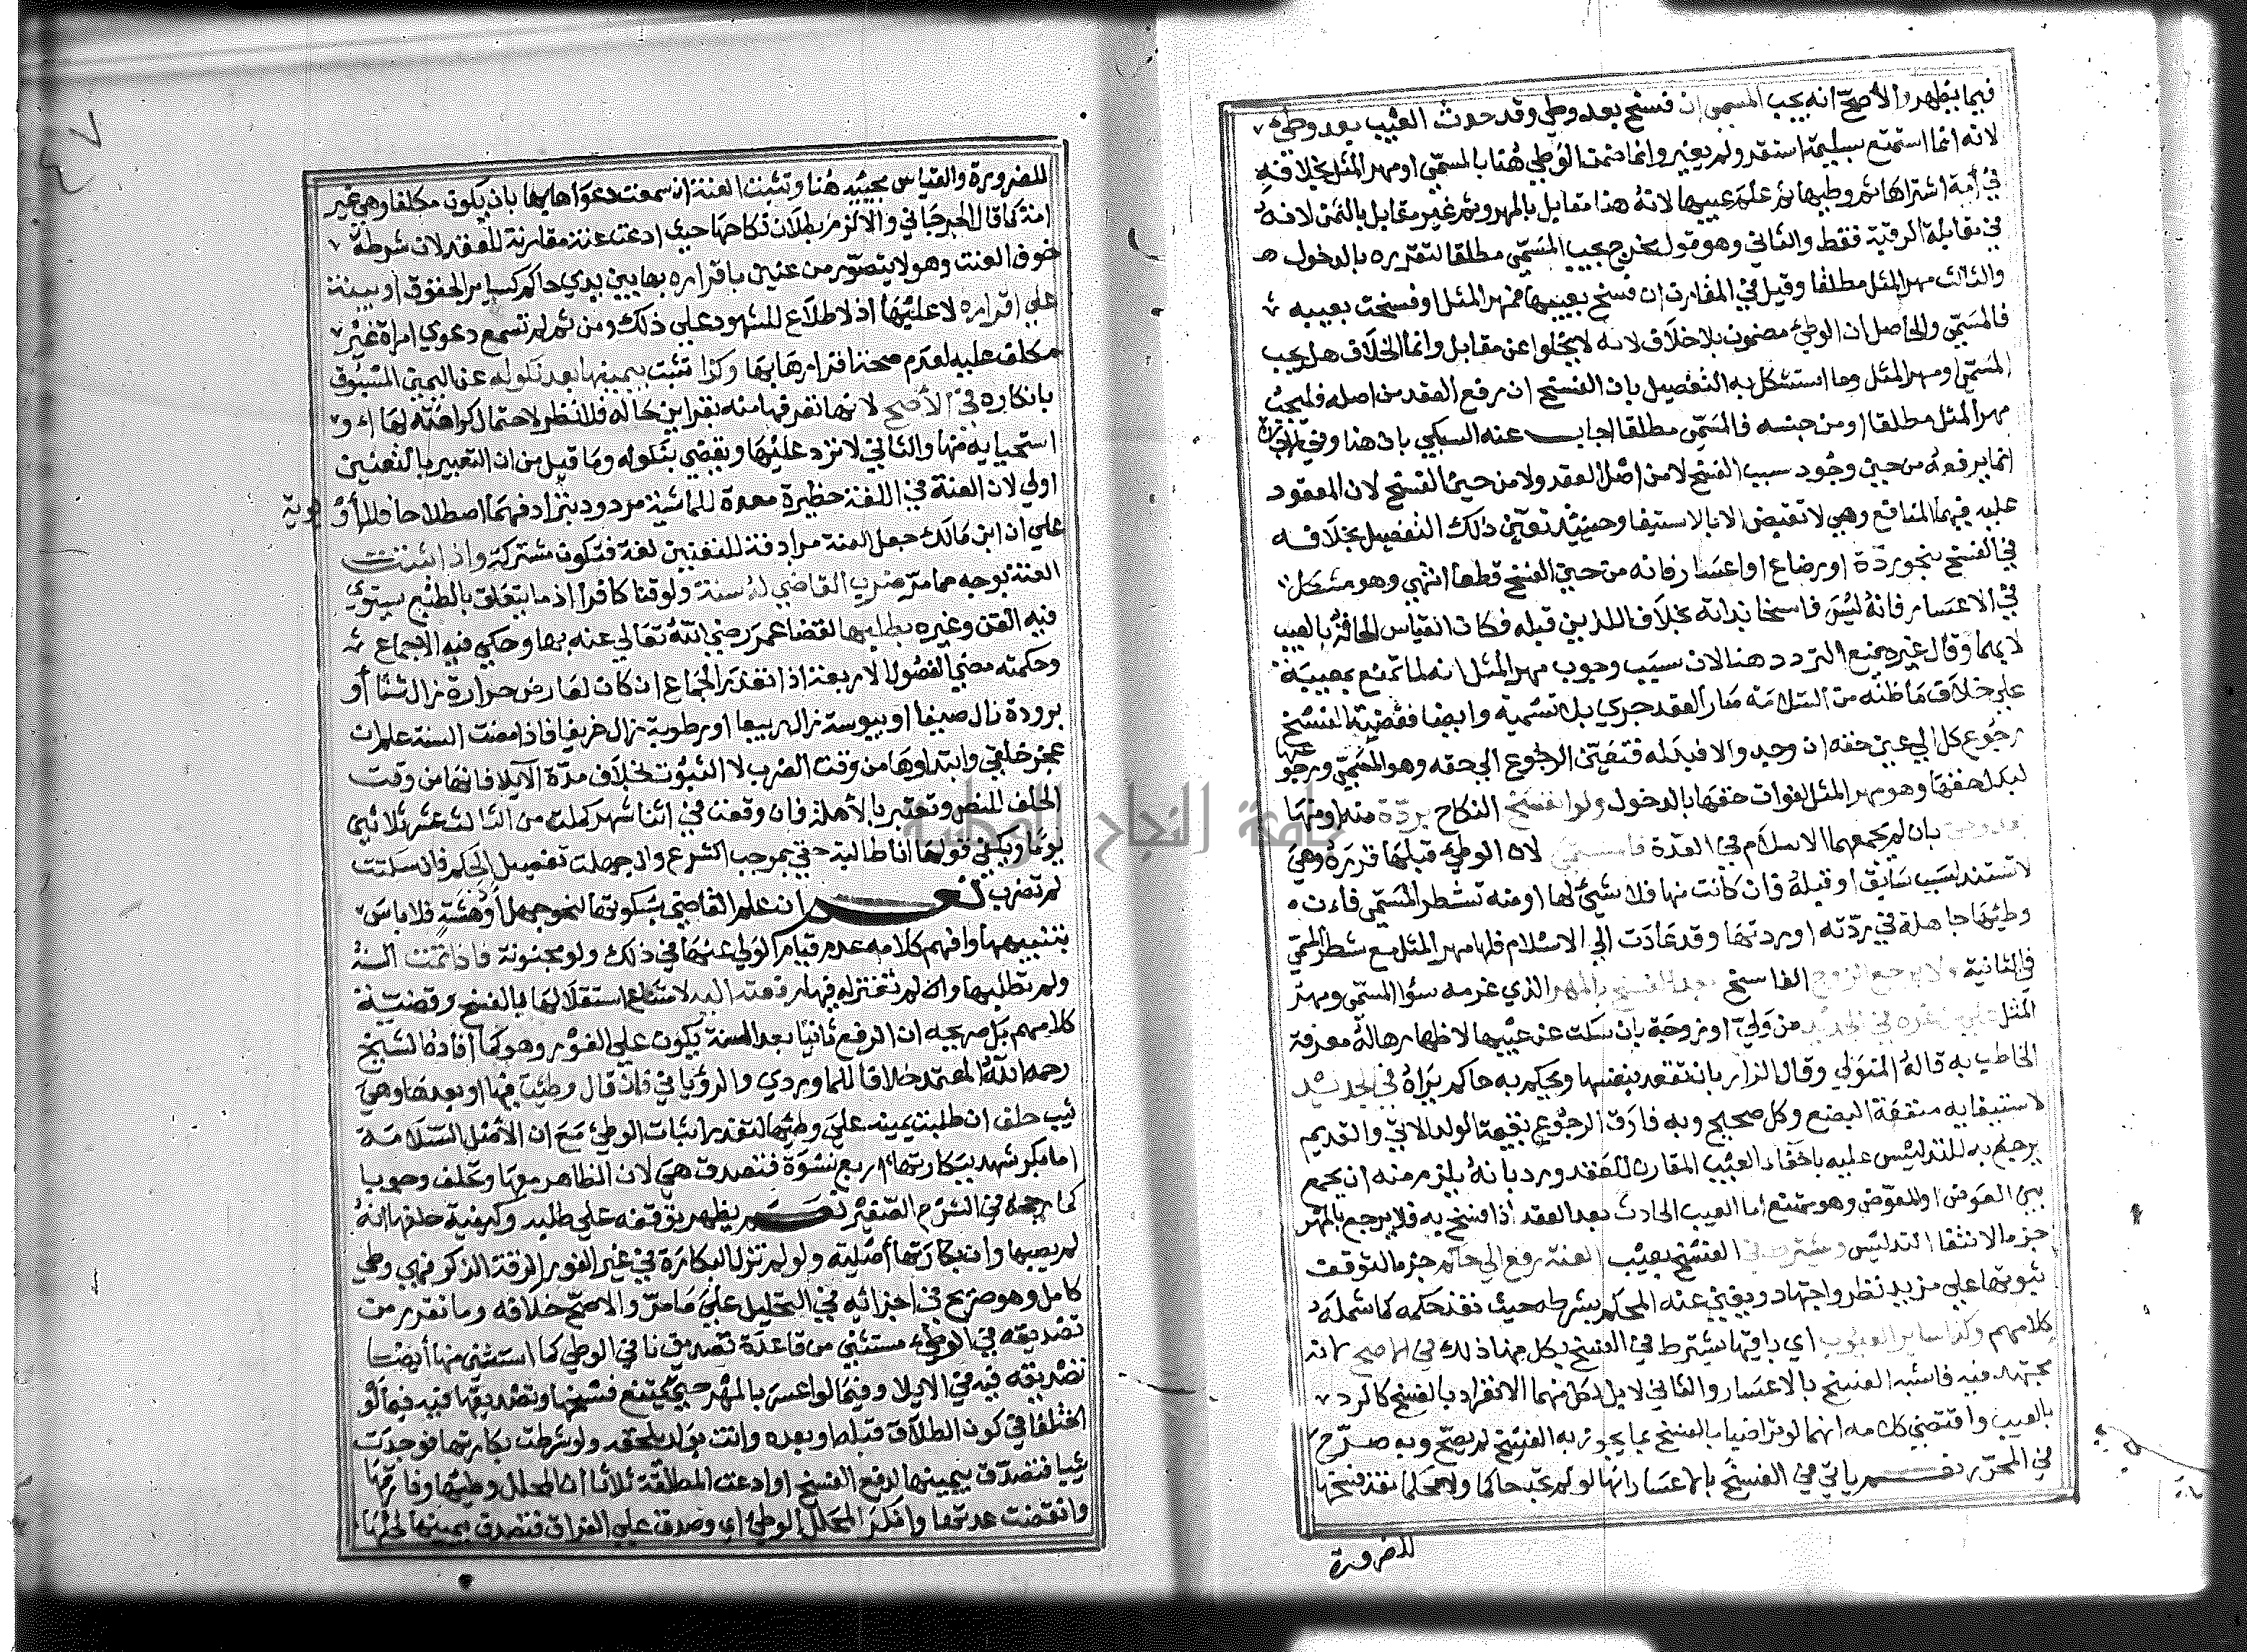 فيما يظهر والأصح انه يجب المسمى ان فسخ بعد وطئ وقد حدث العيب بعد وطئ
لانه انما استمتع بسليمة استقر ولم يغير وانما ضمن الوطئ هنا بالمسمى او مهر المثل بخلافه
في أمة اشتراها ثم وطيها ثم علم عيبها لانه هنا مقابل بالمهر وثم غير مقابل بالثمن لانه
في مقابلة الرقبة فقط والثاني وهو قول مخرج يجب المسمى مطلقا لتقرره بالدخول
والثالث مهر المثل مطلقا وقيل في المقارن ان فسخ بعيبها فمهر المثل او فسخت بعيبه
فالمسمى والحاصل ان الوطئ مضمون بلا خلاف لانه لا يخلوا عن مقابل وانما الخلاف هل يجب
المسمى او مهر المثل وما استشكل به التفصيل بان الفسخ ان رفع العقد من اصله فليجب
مهر المثل مطلقا او من حينه فالمسمى مطلقا اجاب عنه السبكي بان هنا وفي الاجارة
انما يرفعه من حين وجود سبب الفسخ لا من اصل العقد ولا من حين الفسخ لان المعقود
عليه فيهما المنافع وهي لا تقبض الا بالاستيفا وحينئذ تعين ذلك التفصيل بخلافه
في الفسخ بنحو ردة او رضاع او اعسار فانه من حين الفسخ قطعا انتهى وهو مشكل
في الاعسار فانه ليس فاسخا بذاته بخلاف اللذين قبله فكان القياس الحاقه بالعيب
لا بهما وقال غيره يمنع التردد هنا لان سبب وجوب مهر المثل انه لما تمتع بمعيبة
على خلاف ما ظنه من السلامة صار العقد جرى بلا تسمية وايضا فقضية الفسخ
رجوع كل الى عين حقه ان وجد والا فبدله فتعين الرجوع الى حقه وهو المسمى ورجوعها
لبدل حقها وهو مهر المثل لفوات حقها بالدخول ولو انفسخ النكاح بردة منه او منها
بعد وطئ بان لم يجمعهما الاسلام في العدة فالمسمى لان الوطئ قبلها قرره وهي
لا تستند لسبب سابق او قبله فان كانت منها فلا شيئ لها او منه تشطر المسمى فان
وطئها جاهلة في ردته او ردتها وقد عادت الى الاسلام فلها مهر المثل مع شطر المسمى
في الثانية ولا يرجع الزوج الفاسخ بعد الفسخ بالمهر الذي غرمه سوا المسمى ومهر
المثل على من غره في الجديد من ولي او زوجة بان سكت عن عيبها لاظهارها له معرفة
الخاطب به قاله المتولي وقال الزاز بان تعقد بنفسها ويحكم به حاكم يراه في الجديد
لاستيفايه منفعة البضع وكل صحيح وبه فارق الرجوع بقيمة الولد الاتي والقديم
يرجع به للتدليس عليه باخفاء العيب المقارن للعقد ورد بانه يلزم منه ان يجمع
بين العوض والمعوض وهو ممتنع أما العيب الحادث بعد العقد اذا فسخ به فلا يرجع بالمهر
جزما لانتفا التدليس ويشترط في الفسخ بعيب العنة رفع الى حاكم جزما لتوقف
ثبوتها على مزيد نظر واجتهاد ويغني عنه المحكم بشرطه حيث نفذ حكمه كما شمله
كلامهم وكذا ساير العيوب اي باقيها يشترط في الفسخ بكل منها ذلك في الاصح لانه
مجتهد فيه فاشبه الفسخ بالاعسار والثاني لا بل لكل منهما الانفراد بالفسخ كالرد
بالعيب واقتضى كلامه انهما لو تراضيا بالفسخ بما يجوز به الفسخ لم يصح وبه صرح
في المحرر نعم ياتي في الفسخ بالاعسار انها لو لم تجد حاكما ولا محكما نفذ فسخها
للضرورة
للضرورة والقياس مجيئه هنا وتثبت العنة ان سمعت دعواها بها بان يكون مكلفا وهي غير
امة كما قال الجرجاني والا لزم بطلان نكاحها حيث ادعت عنة مقارنة للعقد لان شرطه
خوف العنت وهو لا يتصور من عنين باقراره بها بين يدي حاكم كساير الحقوق او بينة
على اقراره لا عليها اذ لا طلاع للشهود على ذلك ومن ثم لم تسمع دعوى امراة غير
مكلف عليه لعدم صحة اقرارهابها وكذا تثبت بيمينها بعد نكوله عن اليمين المسبوق
بانكاره في الأصح لانها تعرفها منه بقراين حاله فلا نظر لاحتمال كراهته لها او
استحيايه منها والثاني لا ترد عليها ويقضى بنكوله وما قيل من ان التعبير بالتعنين
اولى لان العنة في اللغة حظيرة معدة للماشية مردود بترادفهما اصطلاحا فلا أولوية
على ان ابن مالك جعل العنة مرادفة للتعنين لغة فتكون مشتركة واذا ثبتت
العنة بوجه مما مر ضرب القاضي له سنة ولو قنا كافرا اذ ما يتعلق بالطبع يستوي
فيه القن وغيره بطلبها لقضا عمر رضي الله تعالى عنه بها وحكي فيه الاجماع
وحكمته مضي الفصول الاربعة اذا تعذر الجماع ان كان لعارض حرارة زال شتا أو
برودة زال صيفا او يبوسة زال ربيعا او رطوبة زال خريفا فاذا مضت السنة علم ان
عجز خلقي وابتداوها من وقت الضرب لا الثبوت بخلاف مدة الايلا فانها من وقت
الحلف للنص وتعتبر بالأهلة فان وقعت في اثنا شهر كملت من الثالث عشر ثلاثين
يوما ويكفي قولها انا طالبة حقي بموجب الشرع وان جهلت تفصيل الحكم فان سكتت
لم تضرب نعم ان علم القاضي سكوتها لنحو جهل أو دهشة فلا باس
بتنبيهها وافهم كلامه عدم قيام الولي عنها في ذلك ولو مجنونة فاذا تمت السنة
ولم تطلبها وان لم تعتزله فيها رفعته اليه لامتناع استقلالها بالفسخ وقضية
كلامهم بل صريحه ان الرفع ثانيا بعد السنة يكون على الفور وهو كما افاده الشيخ
رحمه الله المعتمد خلافا للماوردي والرؤياني فان قال وطئت فيها او بعدها وهي
ثيب حلف ان طلبت يمينه على وطئها لتعذر اثبات الوطئ مع ان الأصل السلامة
اما بكر شهد ببكارتها اربع نسوة فتصدق هي لان الظاهر معها وتحلف وجوبا
كما رجحه في الشرح الصغير نعم يظهر توقفه على طلبه وكيفية حلفها انه
لم يصبها وان بكارتها أصلية ولو لم تزل البكارة في غير الغورا لرقة الذكر فهي وطئ
كامل وهو صريح في اجزائه في التحليل على مامر والاصح خلافه وما تقرر من
تصديقه في الوطئ مستثنى من قاعدة تصديق نافي الوطي كما استثني منها أيضا
تصديقه فيه في الايلا وفيما لو اعسر بالمهر حتى يمتنع فسخها وتصديقها فيه فيما لو
اختلفا في كون الطلاق قبله او بعده واتت بولد يلحقه ولو شرطت بكارتها فوجدت
ثيبا فتصدق بيمينها لدفع الفسخ او ادعت المطلقة ثلاثا ان المحلل وطئها وفارقها
وانقضت عدتها وانكر المحلل الوطئ اي وصدق على الفراق فتصدق بيمينها لحلها
جامعة النجاح الوطنية